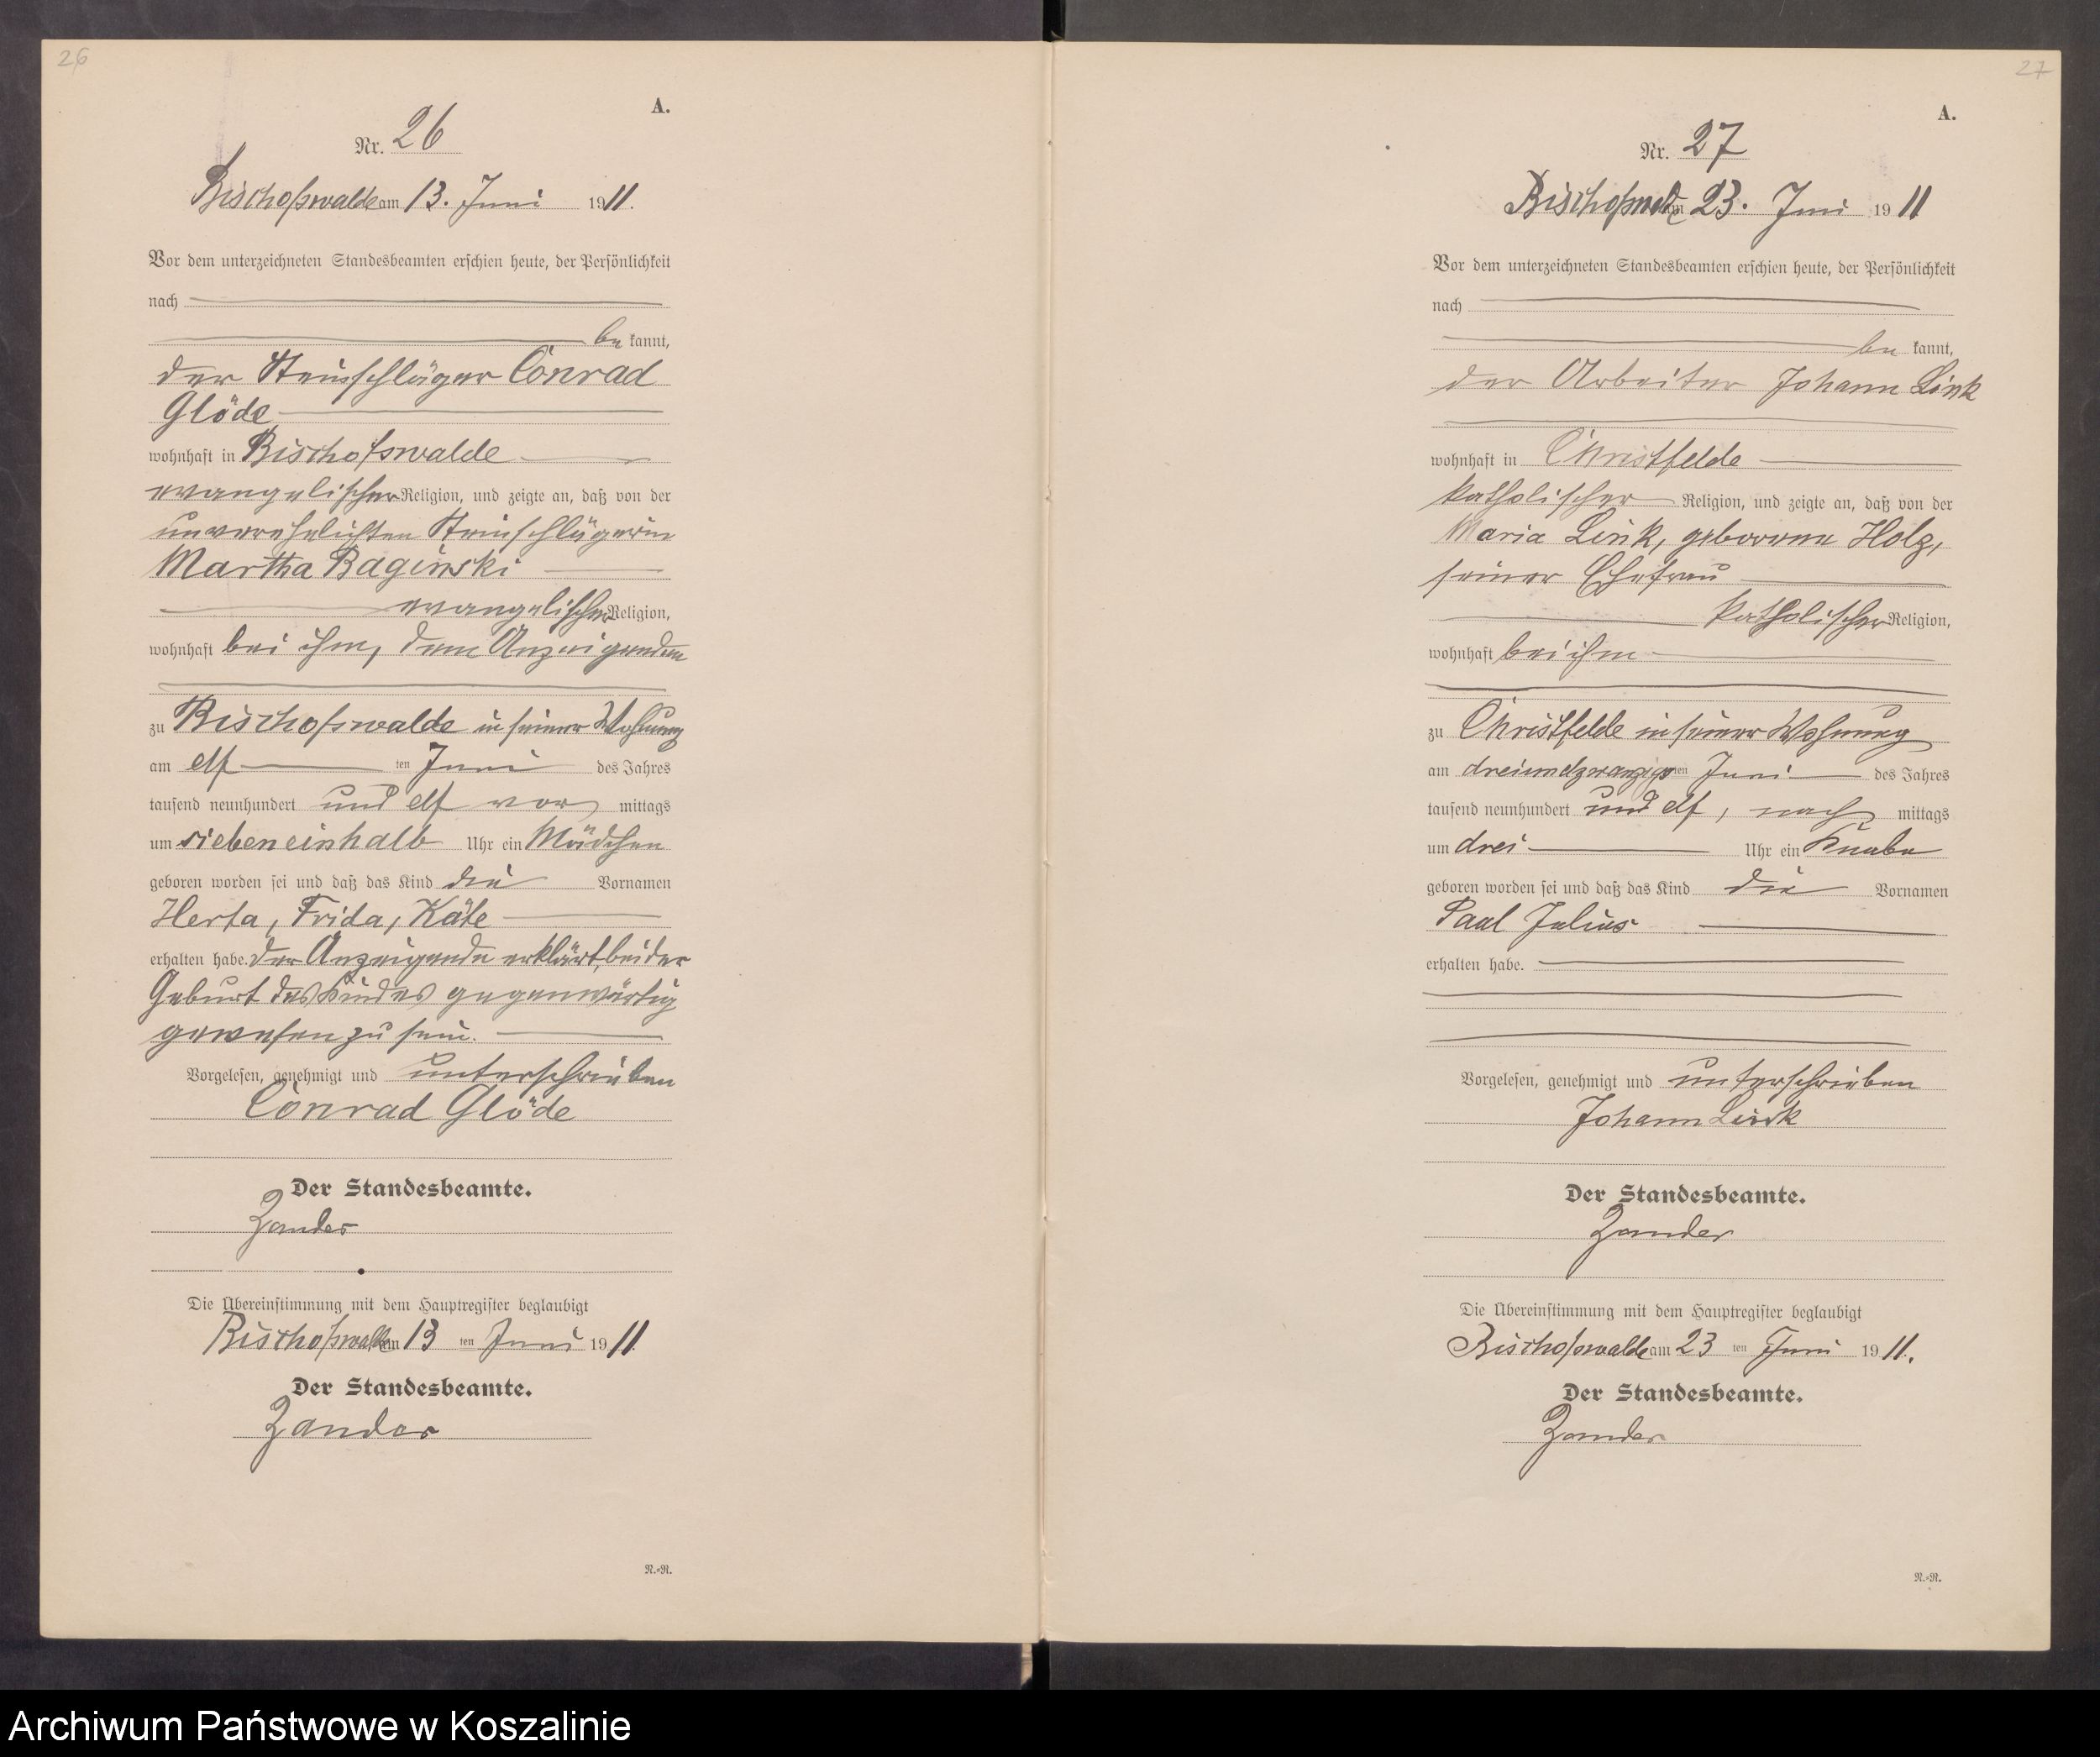 26
A.
Nr. 26
Bischofswalde am 13. Juni 1911.
Vor dem unterzeichneten Standesbeamten erschien heute, der Persönlichkeit
nach
be kannt,
der Steinschläger Conrad
Glöde
wohnhaft in Bischofswalde
evangelischer Religion, und zeigte an, daß von der
unverehelichten Steinschlägerin
Martha Baginski
evangelischer Religion,
wohnhaft bei ihm, dem Anzeigenden
zu Bischofswalde in seiner Wohnung
am elf ten Juni des Jahres
tausend neunhundert und elf vor mittags
um siebeneinhalb Uhr ein Mädchen
geboren worden sei und daß das Kind die Vornamen
Herta, Frida, Käte
erhalten habe. Der Anzeigende erklärt, bei der
Geburt des Kindes gegenwärtig
gewesen zu sein.
Vorgelesen, genehmigt und unterschrieben
Conrad Glöde
Der Standesbeamte.
Zander
Die Übereinstimmung mit dem Hauptregister beglaubigt
Bischofswalde am 13 ten Juni 1911.
Der Standesbeamte.
Zander
N.=N.
27
A.
Nr. 27
Bischofswalde am 23. Juni 1911
Vor dem unterzeichneten Standesbeamten erschien heute, der Persönlichkeit
nach
be kannt,
der Arbeiter Johann Link
wohnhaft in Christfelde
katholischer Religion, und zeigte an, daß von der
Maria Link, geborene Holz,
seiner Ehefrau
katholischer Religion,
wohnhaft bei ihm
zu Christfelde in seiner Wohnung
am dreiundzwanzigsten Juni des Jahres
tausend neunhundert und elf, nach mittags
um drei Uhr ein Knabe
geboren worden sei und daß das Kind die Vornamen
Paul Julius
erhalten habe.
Vorgelesen, genehmigt und unterschrieben
Johann Link
Der Standesbeamte.
Zander
Die Übereinstimmung mit dem Hauptregister beglaubigt
Bischofswalde am 23 ten Juni 1911.
Der Standesbeamte.
Zander
N.=N.
Archiwum Państwowe w Koszalinie